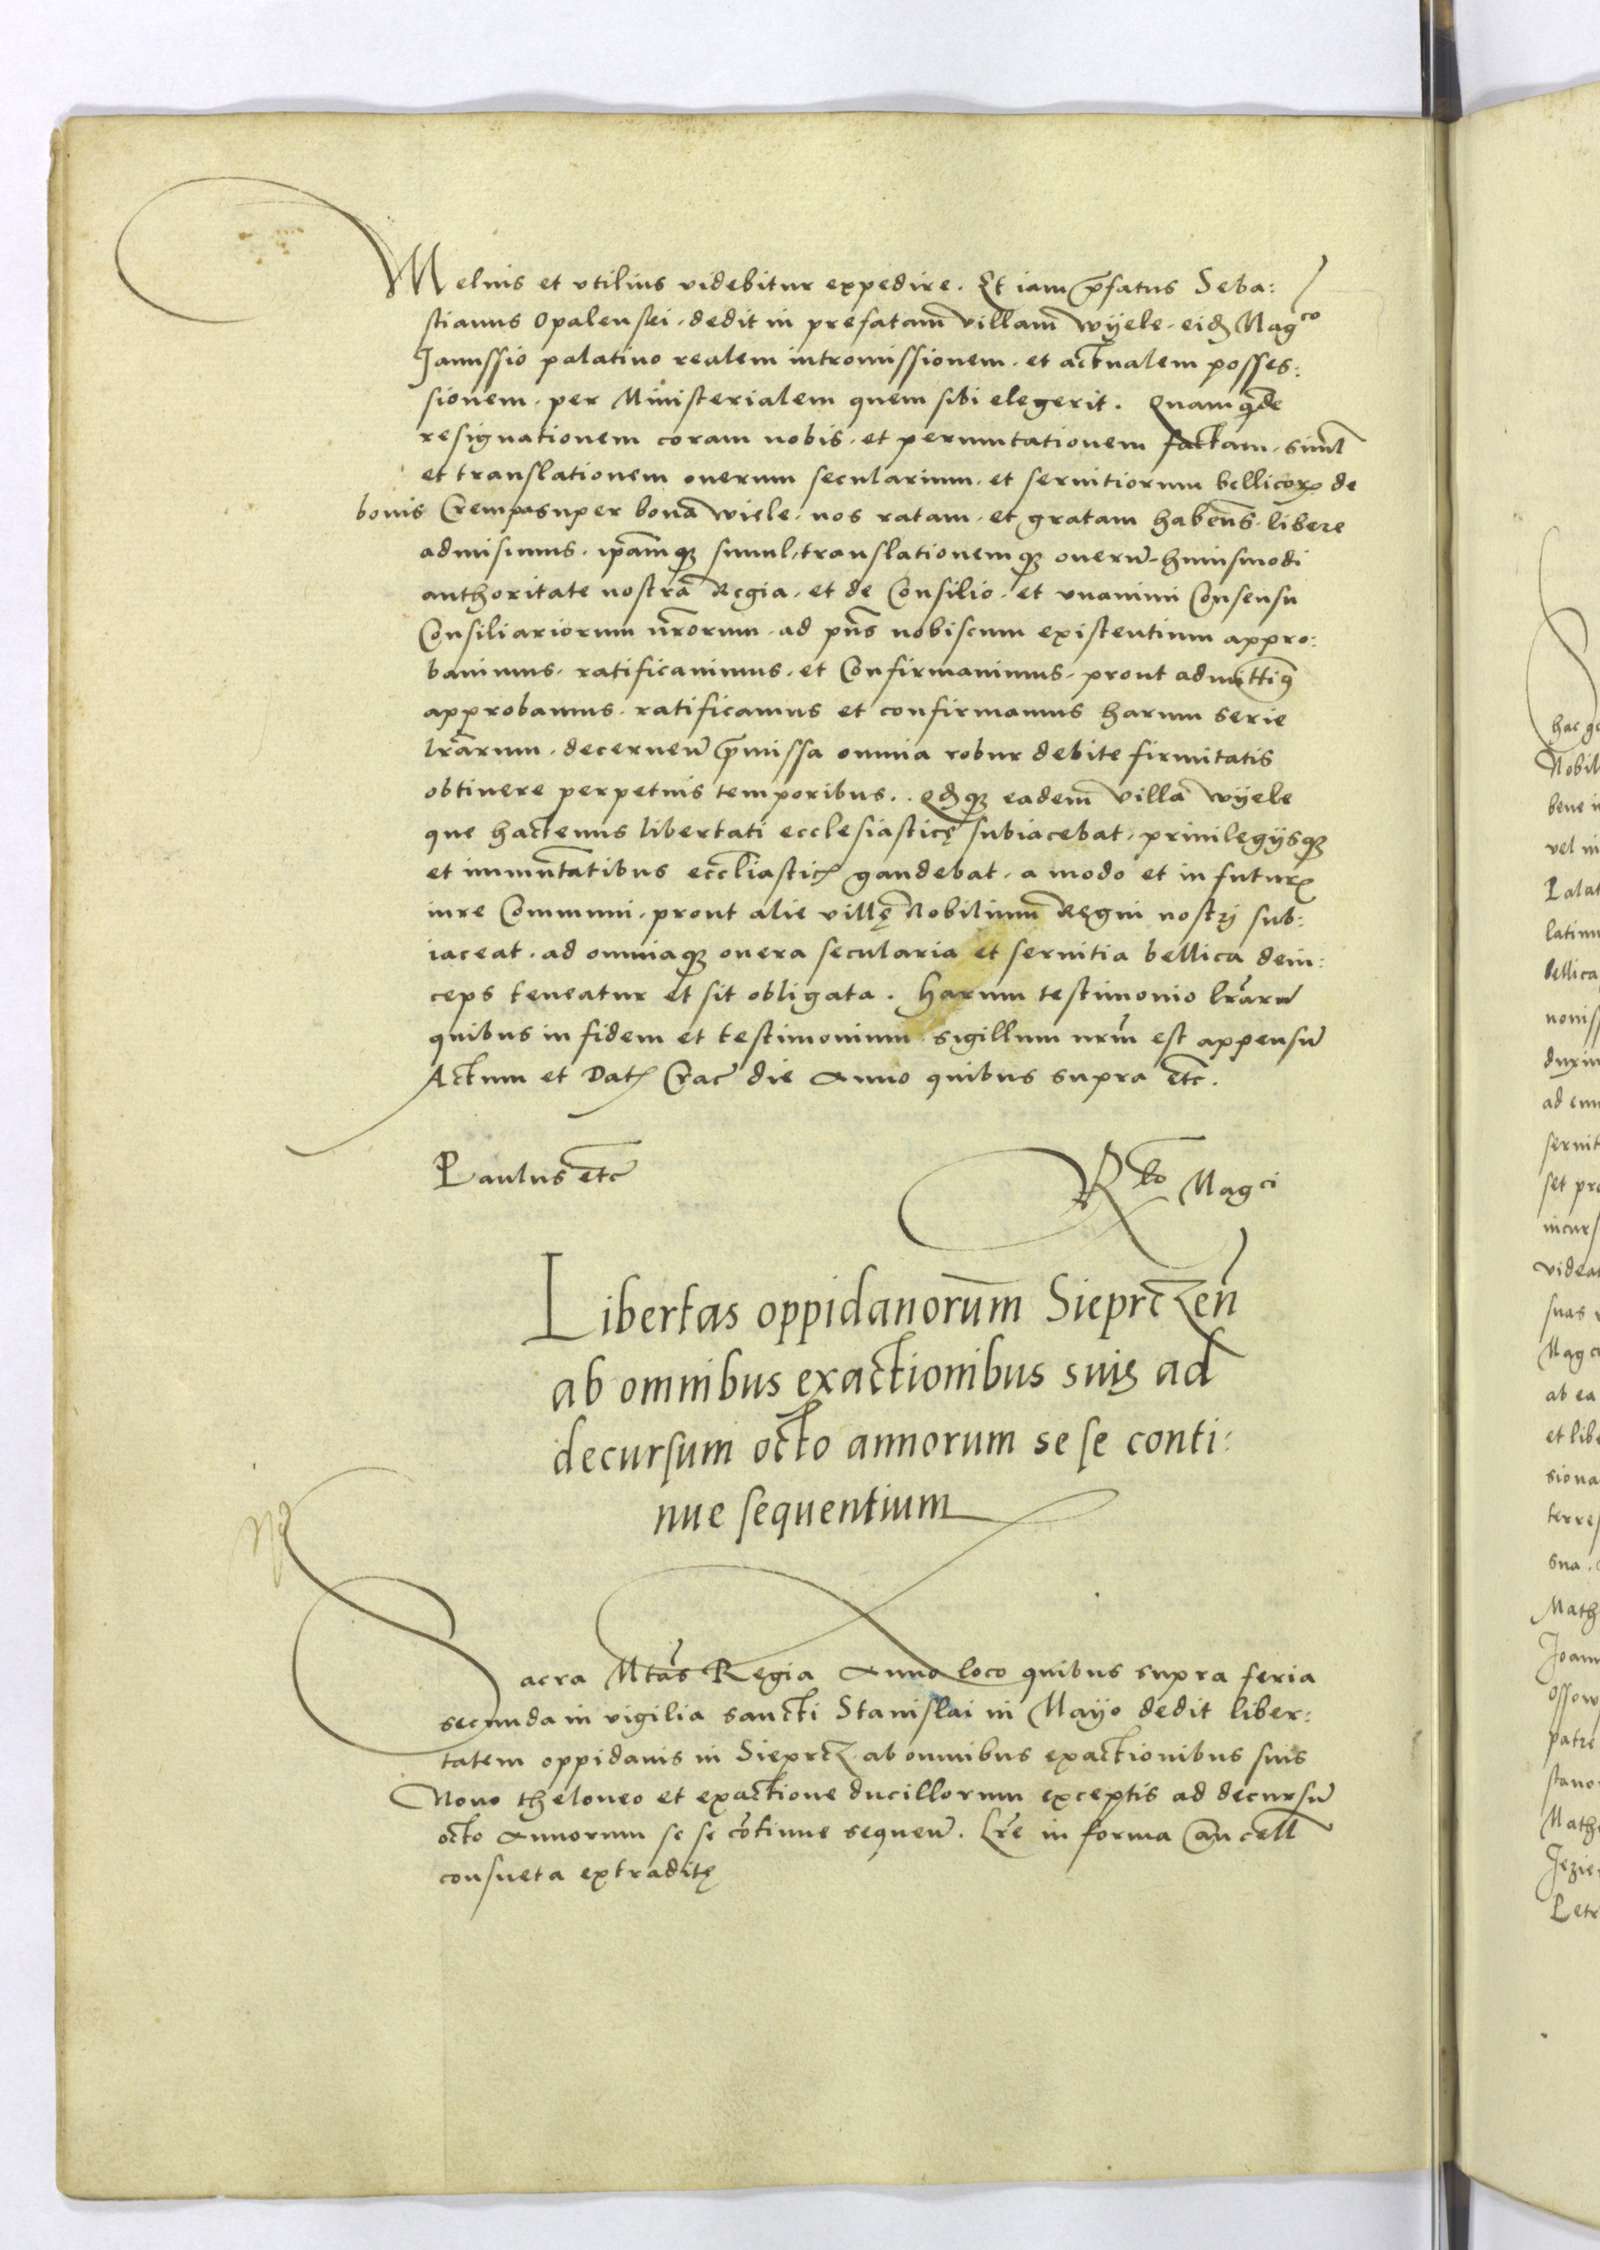 Melius et vtilius videbitur expedire. Et iam p̃fatus Seba:
stianus Opalenski, dedit in prefatam villam wÿele, eidẽ Magco
Janussio palatino realem intromissionem, et actualem posses:
sionem, per Ministerialem quem sibi elegerit. Quam quidẽ
resignationem coram nobis, et permutationem factam, simul
et translationem onerum secularium, et seruitiorum bellicoꝝ de
bonis Crempa super bona wiele, nos ratam, et gratam habeñs, libere
admisimus, ip̃amqꝫ simul, translationemqꝫ onerũ huiusmodi
authoritate nostra Regia, et de Consilio, et vnanimi Consensu
Consiliariorum nr̃orum, ad pñs nobiscum existentium appro:
bauimus, ratificauimus, et Confirmauimus, prout admittimꝰ
approbamus, ratificamus et confirmamus harum serie
lr̃arum, decerneñ p̃missa omnia robur debite firmitatis
obtinere perpetuis temporibus.. Qdqꝫ eadem villa wÿele
que hactenus libertati ecclesiasticę subiacebat, priuilegijsqꝫ
et immunitatibus eccl̃iasticꝭ gaudebat, a modo et in futurꝝ
iure Communi, prout alie villę Nobilium Regni nostri sub:
iaceat, ad omniaqꝫ onera secularia et seruitia bellica dein:
ceps teneatur et sit obligata. Harum testimonio lr̃arũ
quibus in fidem et testimonium sigillum nr̃m est appensũ
Actum et Datꝭ Crac̃ die Anno quibus supra etc̃.
Paulus etc̃
Rdo Magci
Libertas oppidanorum Sieprczeñ
ab omnibus exactionibus suis ad
decursum octo annorum se se conti:
nue sequentium
Sacra Mtas̃ Regia Anno loco quibus supra feria
secunda in vigilia sancti Stanislai in Mayo dedit liber:
tatem oppidanis in Sieprcz ab omnibus exactionibus suis
Nouo theloneo et exactione ducillorum exceptis ad decursũ
octo Annorum se se cõtinue sequeñ. Lr̃e in forma Cancell̃
consueta extraditę